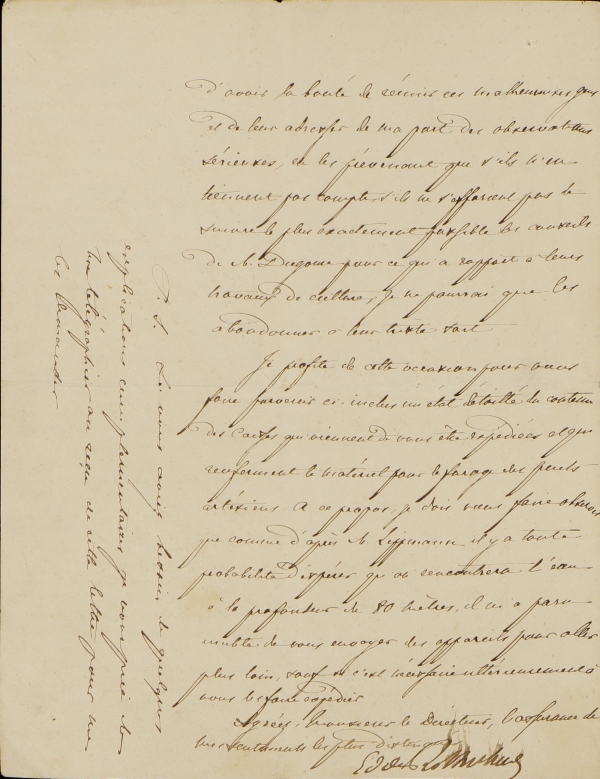 d'avoir la bonté de réunir ces malheureuses gens
et de leur adresser de ma part des observations
sérieuses, en les prévenant que s'ils n'en
tiennent pas compte, s'ils ne s'efforcent pas de
suivre le plus exactement possible les conseils
de M. Dugourc pour ce qui a rapport à leurs
travaux de culture, je ne pourrai que les
abandonner à leur triste sort
Je profite de cette occasion pour vous
faire parvenir ci-inclus un état détaillé du contenu
des Caisses qui viennent de vous être expédiées et qui
renferment le matériel pour le forage des puits
artésiens. A ce propos, je dois vous faire observer
que comme d'après M. Lippmann, il y a toute
probabilité d'espérer qu'on rencontrera l'eau
à la profondeur de 80 mètres, il m'a paru
inutile de vous envoyer des appareils pour aller
plus loin, sauf si c'est nécessaire ultérieurement à
vous les faire expédier
Agréez, Monsieur le Directeur, l'assurance de
mes sentiments les plus distingués
P. S. Si vous avez besoin de quelques
explications complémentaires je vous prie de
me télégraphier au reçu de cette lettre pour me
les demander